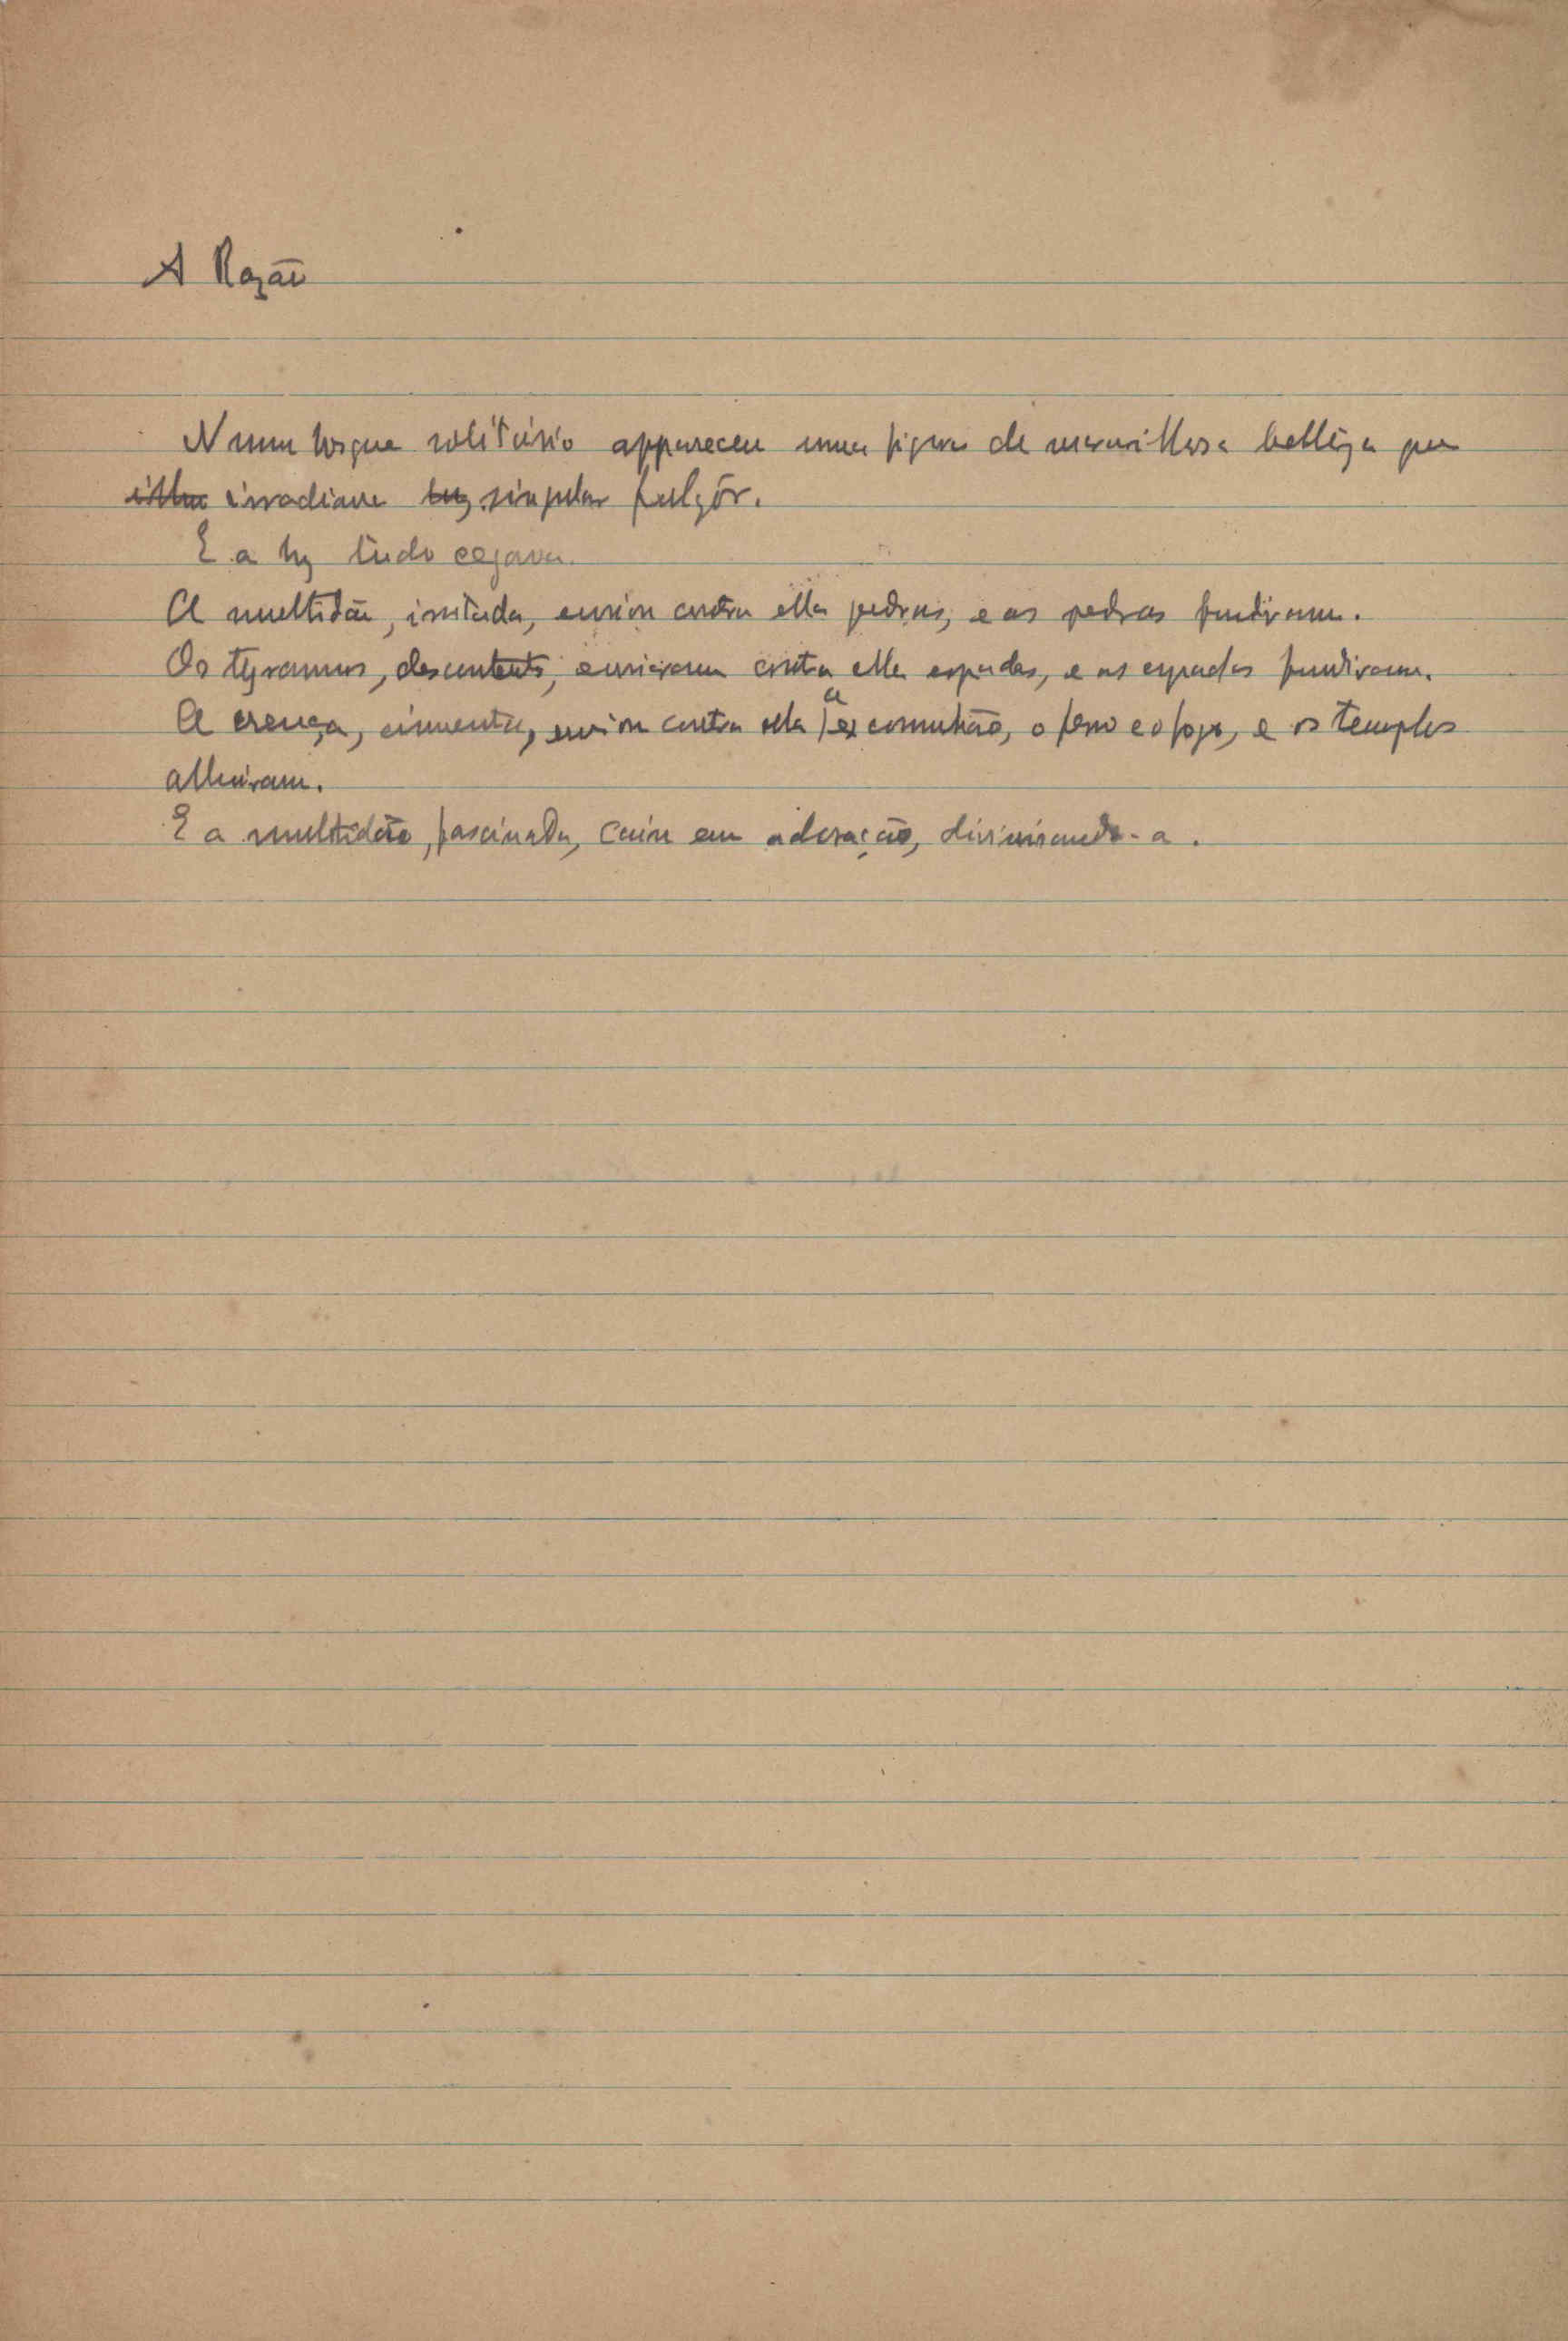 A Razão
Numa bosque solitário appareceu uma figura de maravilhosa belleza que
irradiava luz singular fulgôr.
E a luz tudo cegava.
A multidão, irritada, enviou contra ella pedras, e as pedras fundiram.
Os tyrannos, descontents, enviaram contra ella espadas, e as espadas fundiram.
A crença, ciumenta, enviou contra ella a excomunhão, o ferro e o fogo, e os templos
alluiram.
E a multidão, fascinada, caiu em adoração, divinisando-a.